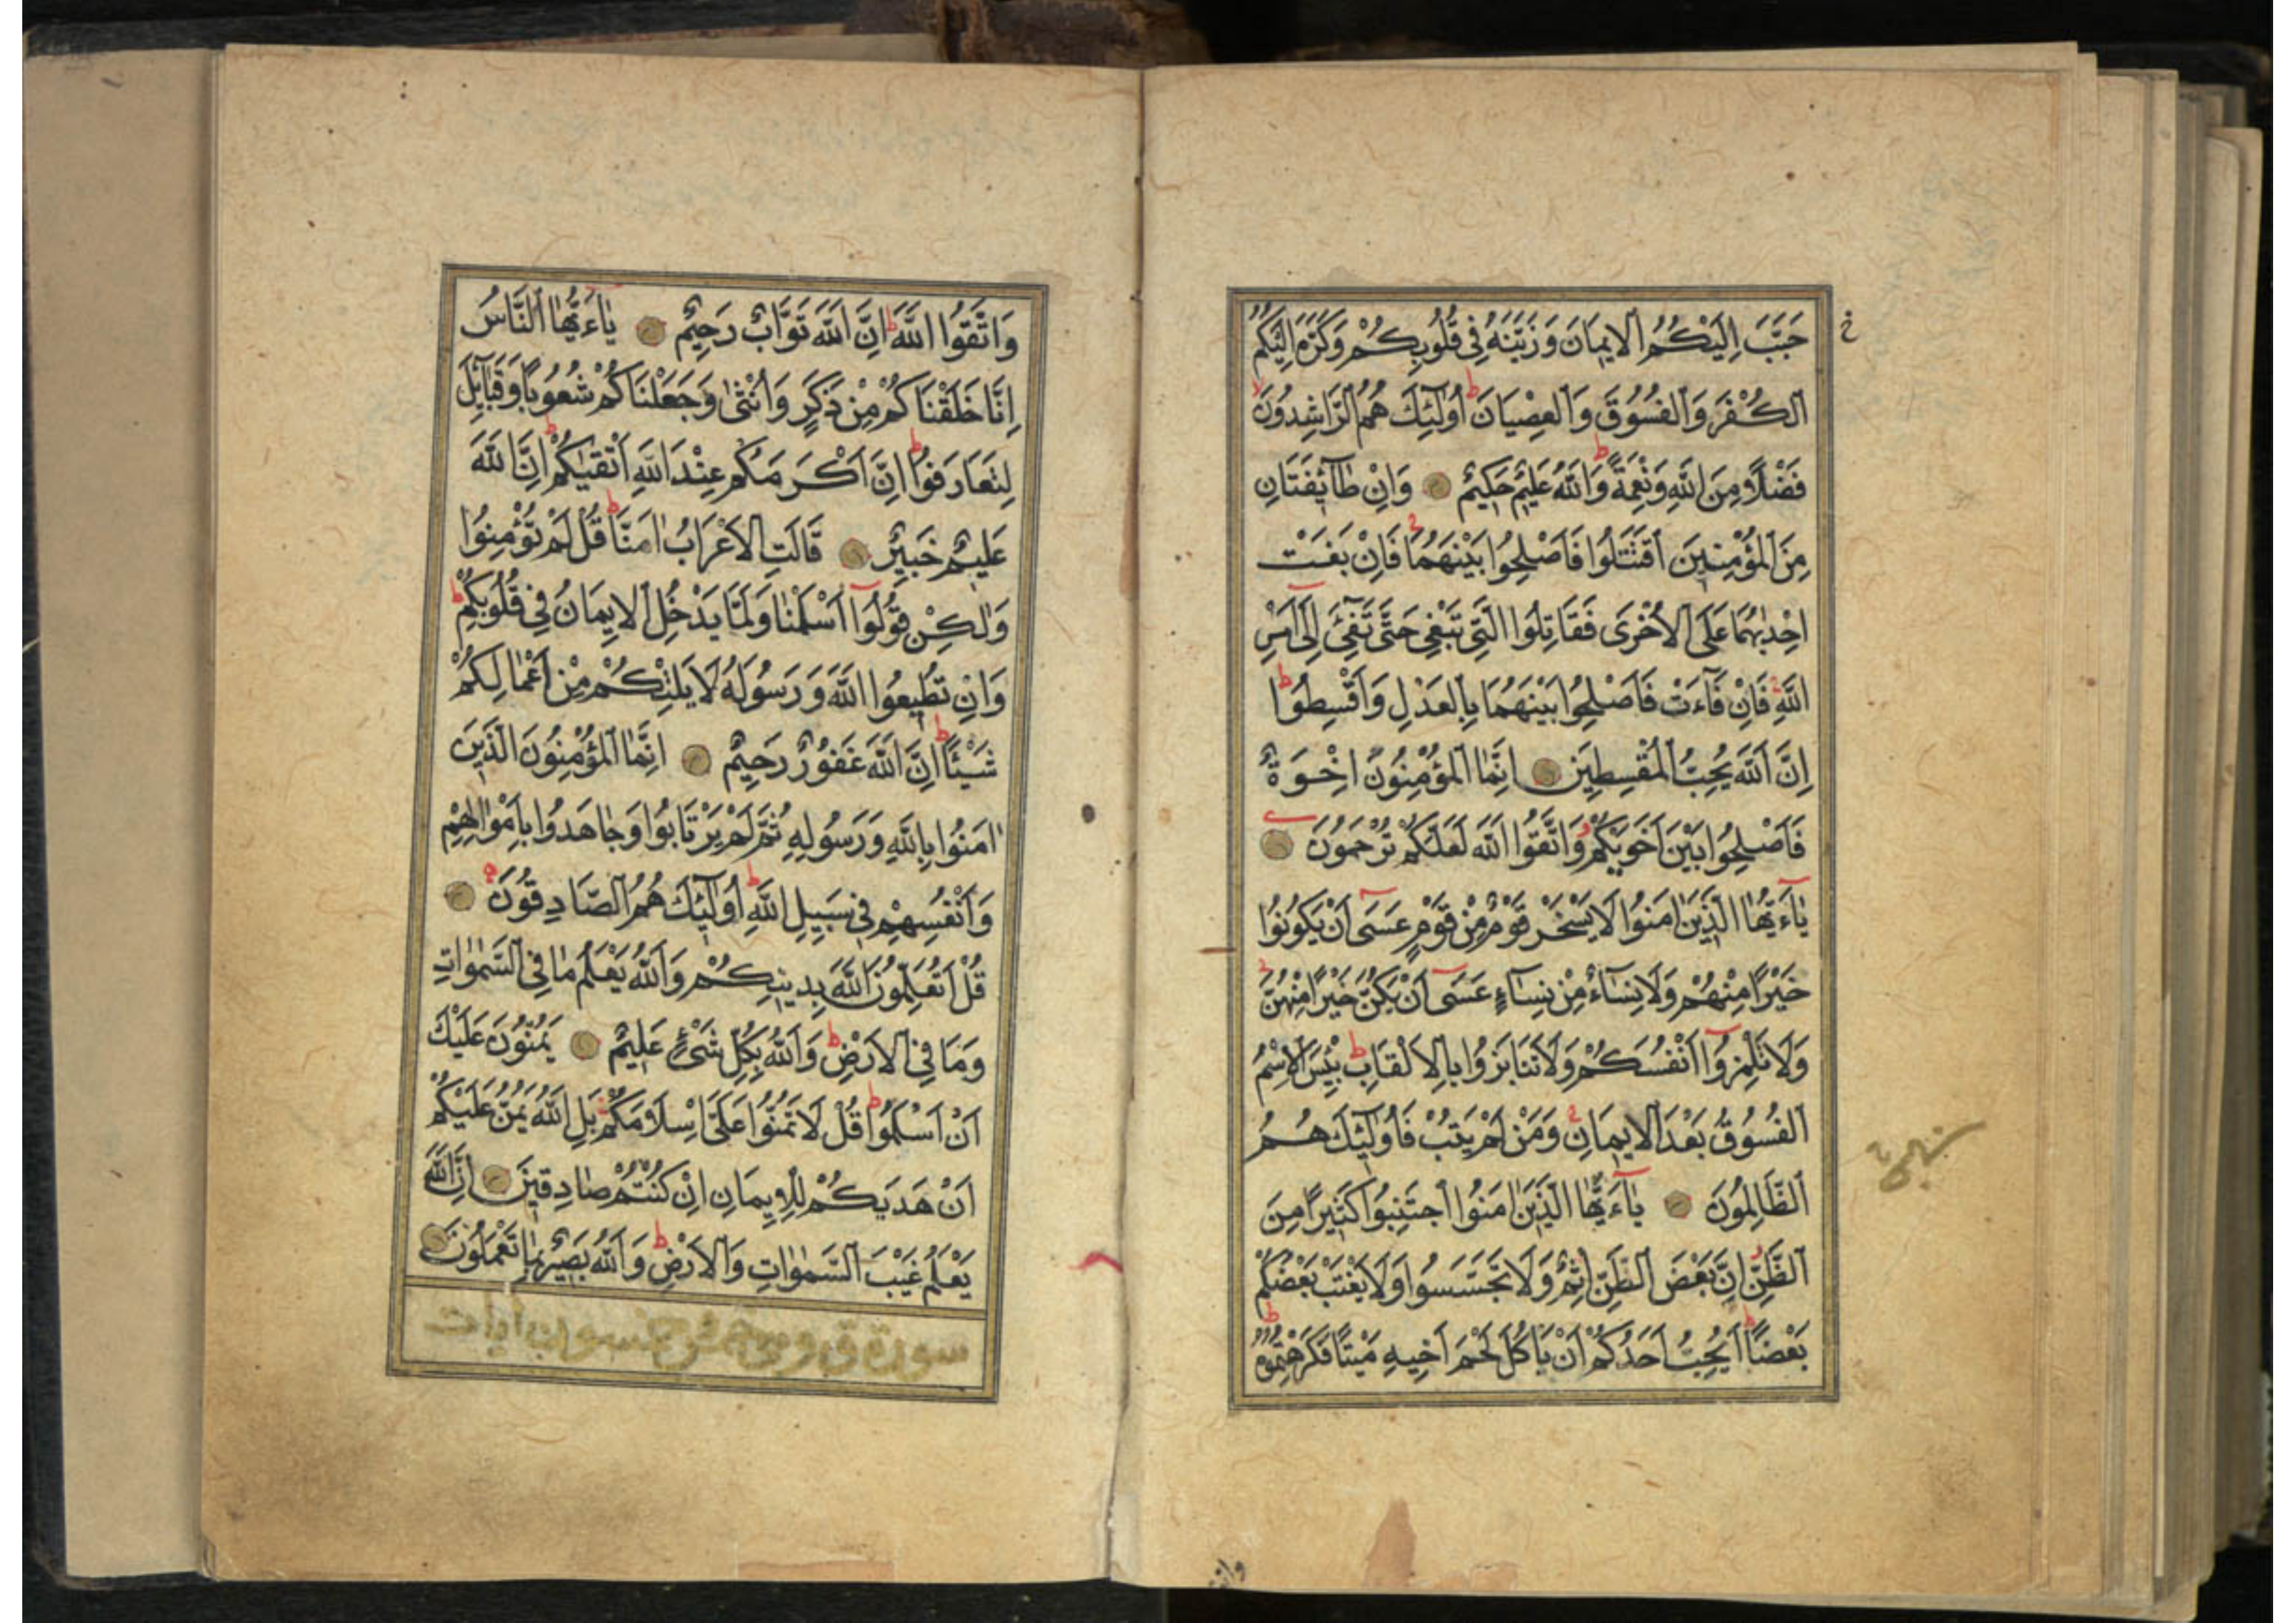 حَبَّبَ اِلَيْكُمُ الْاِيمَانَ وَزَيَّنَهُ فِي قُلُوبِكُمْ وَكَرَّهَ اِلَيْكُمُ
الْكُفْرَ وَالْفُسُوقَ وَالْعِصْيَانَ ط اُولٰٓئِكَ هُمُ الرَّاشِدُونَ لا
فَضْلًا مِنَ اللّٰهِ وَنِعْمَةً ط وَاللّٰهُ عَلِيمٌ حَكِيمٌ وَاِنْ طَآئِفَتَانِ
مِنَ الْمُؤْمِنِينَ اقْتَتَلُوا فَاَصْلِحُوا بَيْنَهُمَا ج فَاِنْ بَغَتْ
اِحْدٰيهُمَا عَلَى الْاُخْرَى فَقَاتِلُوا الَّتِي تَبْغِي حَتَّى تَفِيٓءَ اِلَىٓ اَمْرِ
اللّٰهِ فَاِنْ فَآءَتْ فَاَصْلِحُوا بَيْنَهُمَا بِالْعَدْلِ وَاَقْسِطُوا ط
اِنَّ اللّٰهَ يُحِبُّ الْمُقْسِطِينَ اِنَّمَا الْمُؤْمِنُونَ اِخْوَةٌ
فَاَصْلِحُوا بَيْنَ اَخَوَيْكُمْ وَاتَّقُوا اللّٰهَ لَعَلَّكُمْ تُرْحَمُونَ
يٰٓاَيُّهَا الَّذِينَ اٰمَنُوا لَا يَسْخَرْ قَوْمٌ مِنْ قَوْمٍ عَسَىٓ اَنْ يَكُونُوا
خَيْرًا مِنْهُمْ وَلَا نِسَآءٌ مِنْ نِسَآءٍ عَسَىٓ اَنْ يَكُنَّ خَيْرًا مِنْهُنَّ ج
وَلَا تَلْمِزُوٓا اَنْفُسَكُمْ وَلَا تَنَابَزُوا بِالْاَلْقَابِ ط بِئْسَ الْاِسْمُ
الْفُسُوقُ بَعْدَ الْاِيمَانِ ج وَمَنْ لَمْ يَتُبْ فَاُولٰٓئِكَ هُمُ
الظَّالِمُونَ يٰٓاَيُّهَا الَّذِينَ اٰمَنُوا اجْتَنِبُوا كَثِيرًا مِنَ
الظَّنِّ اِنَّ بَعْضَ الظَّنِّ اِثْمٌ وَلَا تَجَسَّسُوا وَلَا يَغْتَبْ بَعْضُكُمْ
بَعْضًا ط اَيُحِبُّ اَحَدُكُمْ اَنْ يَاْكُلَ لَحْمَ اَخِيهِ مَيْتًا فَكَرِهْتُمُوهُ ط
وَاتَّقُوا اللّٰهَ ط اِنَّ اللّٰهَ تَوَّابٌ رَحِيمٌ يٰاَيُّهَا النَّاسُ
اِنَّا خَلَقْنَاكُمْ مِنْ ذَكَرٍ وَاُنْثٰى وَجَعَلْنَاكُمْ شُعُوبًا وَقَبَآئِلَ
لِتَعَارَفُوا ط اِنَّ اَكْرَمَكُمْ عِنْدَ اللّٰهِ اَتْقٰيكُمْ ط اِنَّ اللّٰهَ
عَلِيمٌ خَبِيرٌ قَالَتِ الْاَعْرَابُ اٰمَنَّا ط قُلْ لَمْ تُؤْمِنُوا
وَلٰكِنْ قُولُوٓا اَسْلَمْنَا وَلَمَّا يَدْخُلِ الْاِيمَانُ فِي قُلُوبِكُمْ ط
وَاِنْ تُطِيعُوا اللّٰهَ وَرَسُولَهُ لَا يَلِتْكُمْ مِنْ اَعْمَالِكُمْ
شَيْئًا ط اِنَّ اللّٰهَ غَفُورٌ رَحِيمٌ اِنَّمَا الْمُؤْمِنُونَ الَّذِينَ
اٰمَنُوا بِاللّٰهِ وَرَسُولِهِ ثُمَّ لَمْ يَرْتَابُوا وَجَاهَدُوا بِاَمْوَالِهِمْ
وَاَنْفُسِهِمْ فِي سَبِيلِ اللّٰهِ ط اُولٰٓئِكَ هُمُ الصَّادِقُونَ
قُلْ اَتُعَلِّمُونَ اللّٰهَ بِدِينِكُمْ وَاللّٰهُ يَعْلَمُ مَا فِي السَّمٰوَاتِ
وَمَا فِي الْاَرْضِ ط وَاللّٰهُ بِكُلِّ شَيْءٍ عَلِيمٌ يَمُنُّونَ عَلَيْكَ
اَنْ اَسْلَمُوا ط قُلْ لَا تَمُنُّوا عَلَيَّ اِسْلَامَكُمْ بَلِ اللّٰهُ يَمُنُّ عَلَيْكُمْ
اَنْ هَدٰيكُمْ لِلْاِيمَانِ اِنْ كُنْتُمْ صَادِقِينَ اِنَّ اللّٰهَ
يَعْلَمُ غَيْبَ السَّمٰوَاتِ وَالْاَرْضِ ط وَاللّٰهُ بَصِيرٌ بِمَا تَعْمَلُونَ
سورة ق وهي خمس آيات